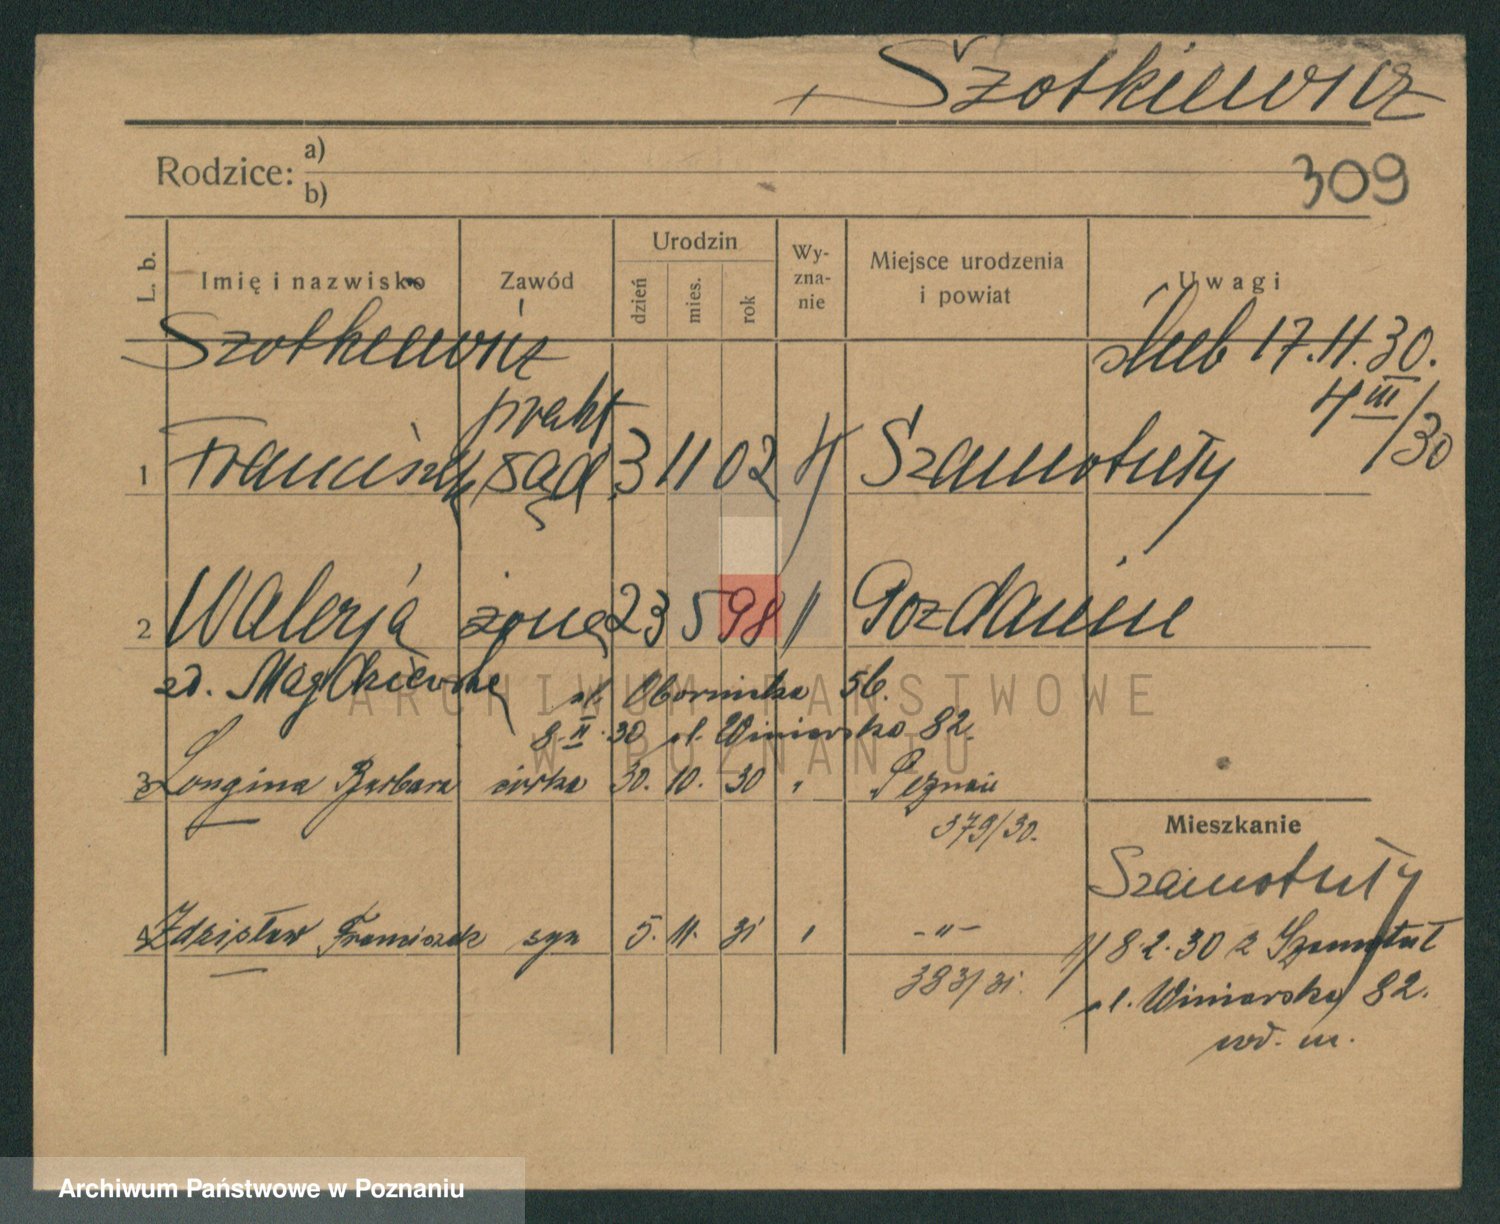 Szotkiewicz
Rodzice: a)
b)
309
L. b.
Imię i nazwisko
Zawód
Urodzin
dzień
mies.
rok
Wy-
zna-
nie
Miejsce urodzenia
i powiat
Uwagi
Szotkiewicz
ślub 17.11.30.
4 III/30
prakt
1 Franciszek sąd 3 11 02 Szamotuły
2 Waleria żona 23 5 98 " Gozdanin
zd.
ul. Obornicka 56.
8. II. 30 ul. Winiarska 82.
3 Longina Barbara córka 30. 10. 30 " Poznań
379/30.
Mieszkanie
Szamotuły
4 Zdzisław Franciszek syn 5. 11. 31 " -"-
8.2.30 z Szamotuł
383/31.
ul. Winiarska 82.
wł. m.
ARCHIWUM PAŃSTWOWE
W POZNANIU
Archiwum Państwowe w Poznaniu